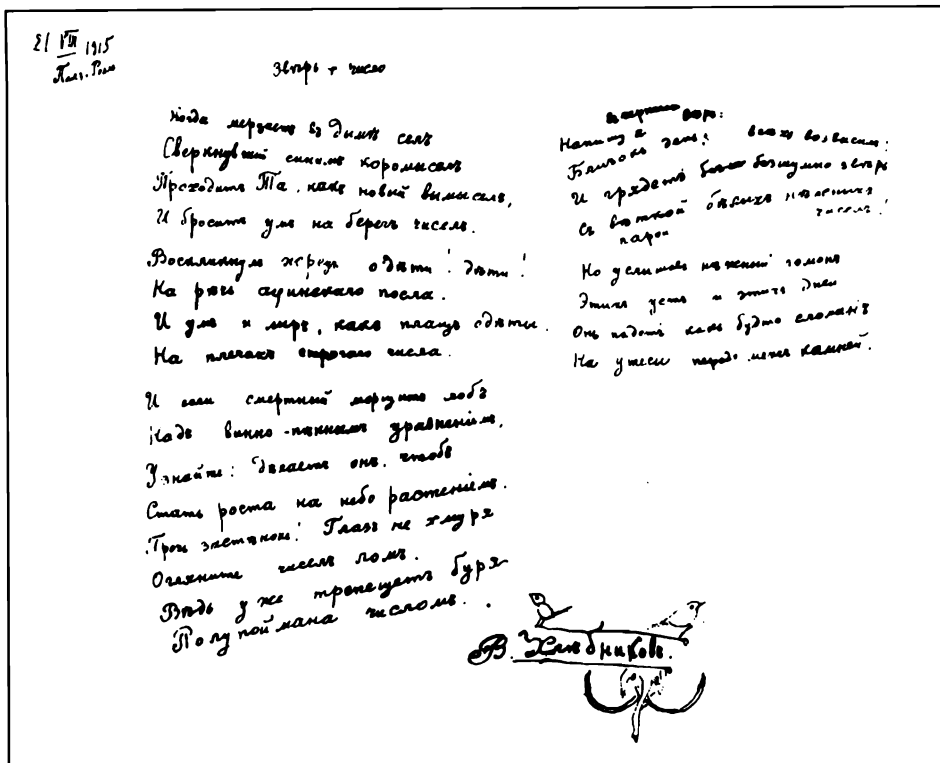 21 VIII 1915
Звѣрь + число
Когда мерцаетъ въ дымѣ селъ
Сверкнувшій синимъ коромысломъ
Проходитъ Та, какъ новый вымыселъ,
И бросить умъ на берегъ чиселъ.
Воскликнулъ жрецъ о дѣти! дѣти!
На рѣчь ацинскаго посла.
И умъ и міръ, какъ плащъ одѣты.
На плечахъ строгаго числа.
И если смертный морщитъ лобъ
Надъ винно-пѣннымъ уравненіемъ,
Узнайте: дѣлаетъ онъ, чтобъ
Стать роста на небо растеніемъ.
Прочь застѣнок! Глазъ не хмуря
Огляните чиселъ ломъ.
Вѣдь уже трепещетъ буря
Полупоймана числомъ.
Близокъ день! всѣхъ возвысил:
И грядетъ безшумно звѣрь
Съ вѣткой бѣлыхъ нѣжныхъ
чиселъ!
Но услышавъ нѣжный гомонъ
Этихъ устъ и этихъ дней
Онъ падетъ какъ будто сломанъ
На утесы передо мной камней.
В. Хлѣбниковъ.